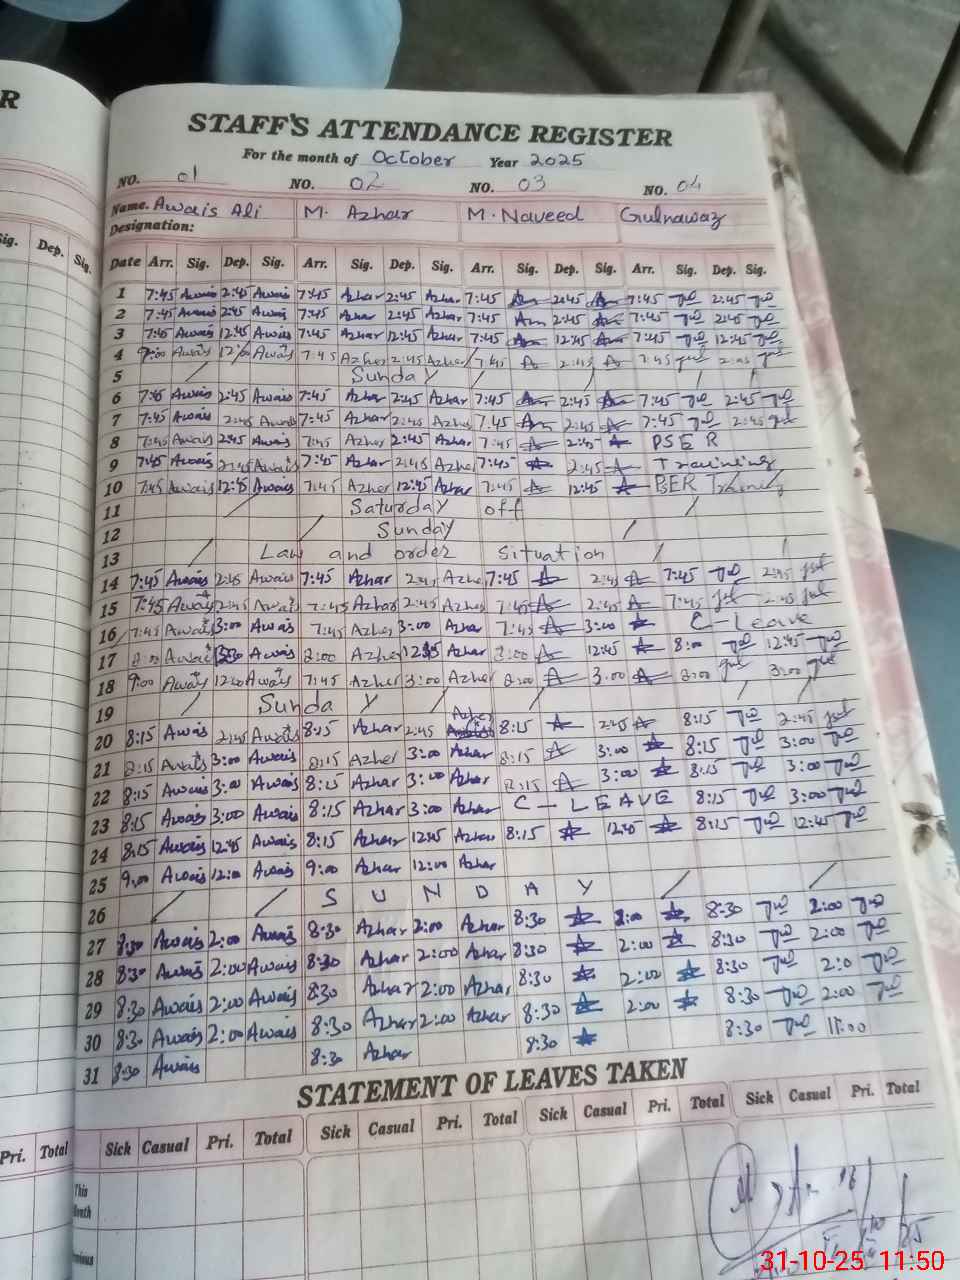 R
STAFF'S ATTENDANCE REGISTER
For the month of October Year 2025
NO. 01 NO. 02 NO. 03 NO. 04
Name. Awais Ali M. Azhar M. Naveed Gulnawaz
Designation:
Sig. Dep. Sig.
Date Arr. Sig. Dep. Sig. Arr. Sig. Dep. Sig. Arr. Sig. Dep. Sig. Arr. Sig. Dep. Sig.
1 7:45 Awais 2:45 Awais 7:45 Azhar 2:45 Azhar 7:45 2:45 7:45 2:45
2 7:45 Awais 2:45 Awais 7:45 Azhar 2:45 Azhar 7:45 2:45 7:45 2:45
3 7:45 Awais 12:45 Awais 7:45 Azhar 12:45 Azhar 7:45 12:45 7:45 12:45
4 9:00 Awais Awais 7:45 Azhar 2:45 Azhar 7:45 2:45 7:45 2:45
5 Sunday
6 7:45 Awais 2:45 Awais 7:45 Azhar 2:45 Azhar 7:45 2:45 7:45 2:45
7 7:45 Awais 2:45 Awais 7:45 Azhar 2:45 Azhar 7:45 2:45 7:45 2:45
8 7:45 Awais 2:45 Awais 7:45 Azhar 2:45 Azhar 7:45 2:45 PSER
9 7:45 Awais 2:45 Awais 7:45 Azhar 2:45 Azhar 7:45 2:45 Training
10 7:45 Awais 12:45 Awais 7:45 Azhar 12:45 Azhar 7:45 12:45 PSER Training
11 Saturday off
12 Sunday
13 Law and order Situation
14 7:45 Awais 2:45 Awais 7:45 Azhar 2:45 Azhar 7:45 2:45 7:45 2:45
15 7:45 Awais 2:45 Awais 7:45 Azhar 2:45 Azhar 7:45 2:45 7:45 2:45
16 7:45 Awais 3:00 Awais 7:45 Azhar 3:00 Azhar 7:45 3:00 C-Leave
17 8:00 Awais Awais 8:00 Azhar 12:45 Azhar 8:00 12:45 8:00 12:45
18 9:00 Awais 12:00 Awais 7:45 Azhar 3:00 Azhar 8:00 3:00 8:00 3:00
19 Sunday
20 8:15 Awais 2:45 Awais 8:15 Azhar 2:45 Azhar 8:15 2:45 8:15 2:45
21 8:15 Awais 3:00 Awais 8:15 Azhar 3:00 Azhar 8:15 3:00 8:15 3:00
22 8:15 Awais 3:00 Awais 8:15 Azhar 3:00 Azhar 8:15 3:00 8:15 3:00
23 8:15 Awais 3:00 Awais 8:15 Azhar 3:00 Azhar C-LEAVE 8:15 3:00
24 8:15 Awais 12:45 Awais 8:15 Azhar 12:45 Azhar 8:15 12:45 8:15 12:45
25 9:00 Awais 12:00 Awais 9:00 Azhar 12:00 Azhar
26 SUNDAY
27 8:30 Awais 2:00 Awais 8:30 Azhar 2:00 Azhar 8:30 2:00 8:30 2:00
28 8:30 Awais 2:00 Awais 8:30 Azhar 2:00 Azhar 8:30 2:00 8:30 2:00
29 8:30 Awais 2:00 Awais 8:30 Azhar 2:00 Azhar 8:30 2:00 8:30 2:0
30 8:30 Awais 2:00 Awais 8:30 Azhar 2:00 Azhar 8:30 2:00 8:30 2:00
31 8:30 Awais 8:30 Azhar 8:30 8:30 11:00
STATEMENT OF LEAVES TAKEN
Pri. Total
Sick Casual Pri. Total Sick Casual Pri. Total Sick Casual Pri. Total Sick Casual Pri. Total
This
Month
31-10-25 11:50